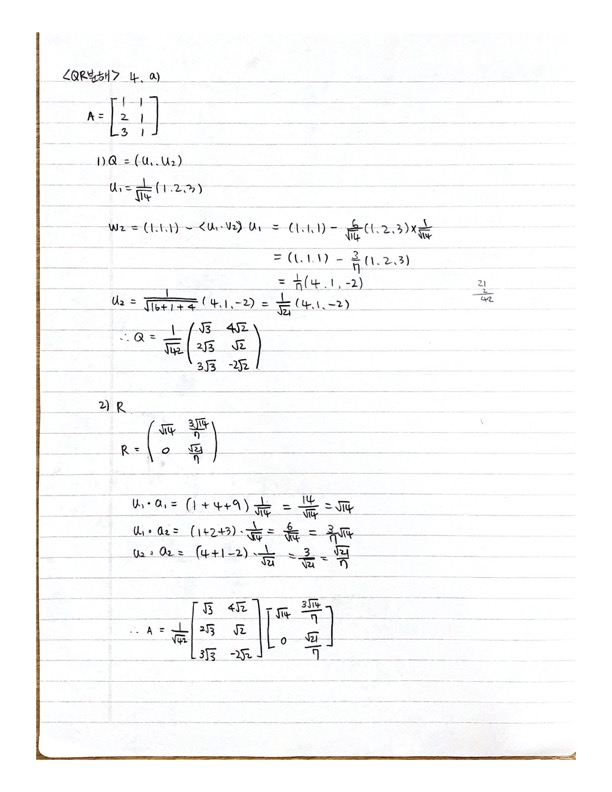 <QR분해> 4. a)
A = [1 1; 2 1; 3 1]
1) Q = (u₁, u₂)
u₁ = 1/√14 (1.2.3)
w₂ = (1.1.1) - <u₁·v₂> u₁ = (1.1.1) - 6/√14 (1.2.3) × 1/√14
= (1.1.1) - 3/7 (1.2.3)
= 1/7 (4.1.-2)
u₂ = 1/√(16+1+4) (4.1.-2) = 1/√21 (4.1.-2)
21
2
42
∴ Q = 1/√42 (√3 4√2; 2√3 √2; 3√3 -2√2)
2) R
R = (√14 3√14/7; 0 √21/7)
u₁·a₁ = (1+4+9) 1/√14 = 14/√14 = √14
u₁·a₂ = (1+2+3)·1/√14 = 6/√14 = 3/7 √14
u₂·a₂ = (4+1-2)·1/√21 = 3/√21 = √21/7
∴ A = 1/√42 [√3 4√2; 2√3 √2; 3√3 -2√2] [√14 3√14/7; 0 √21/7]